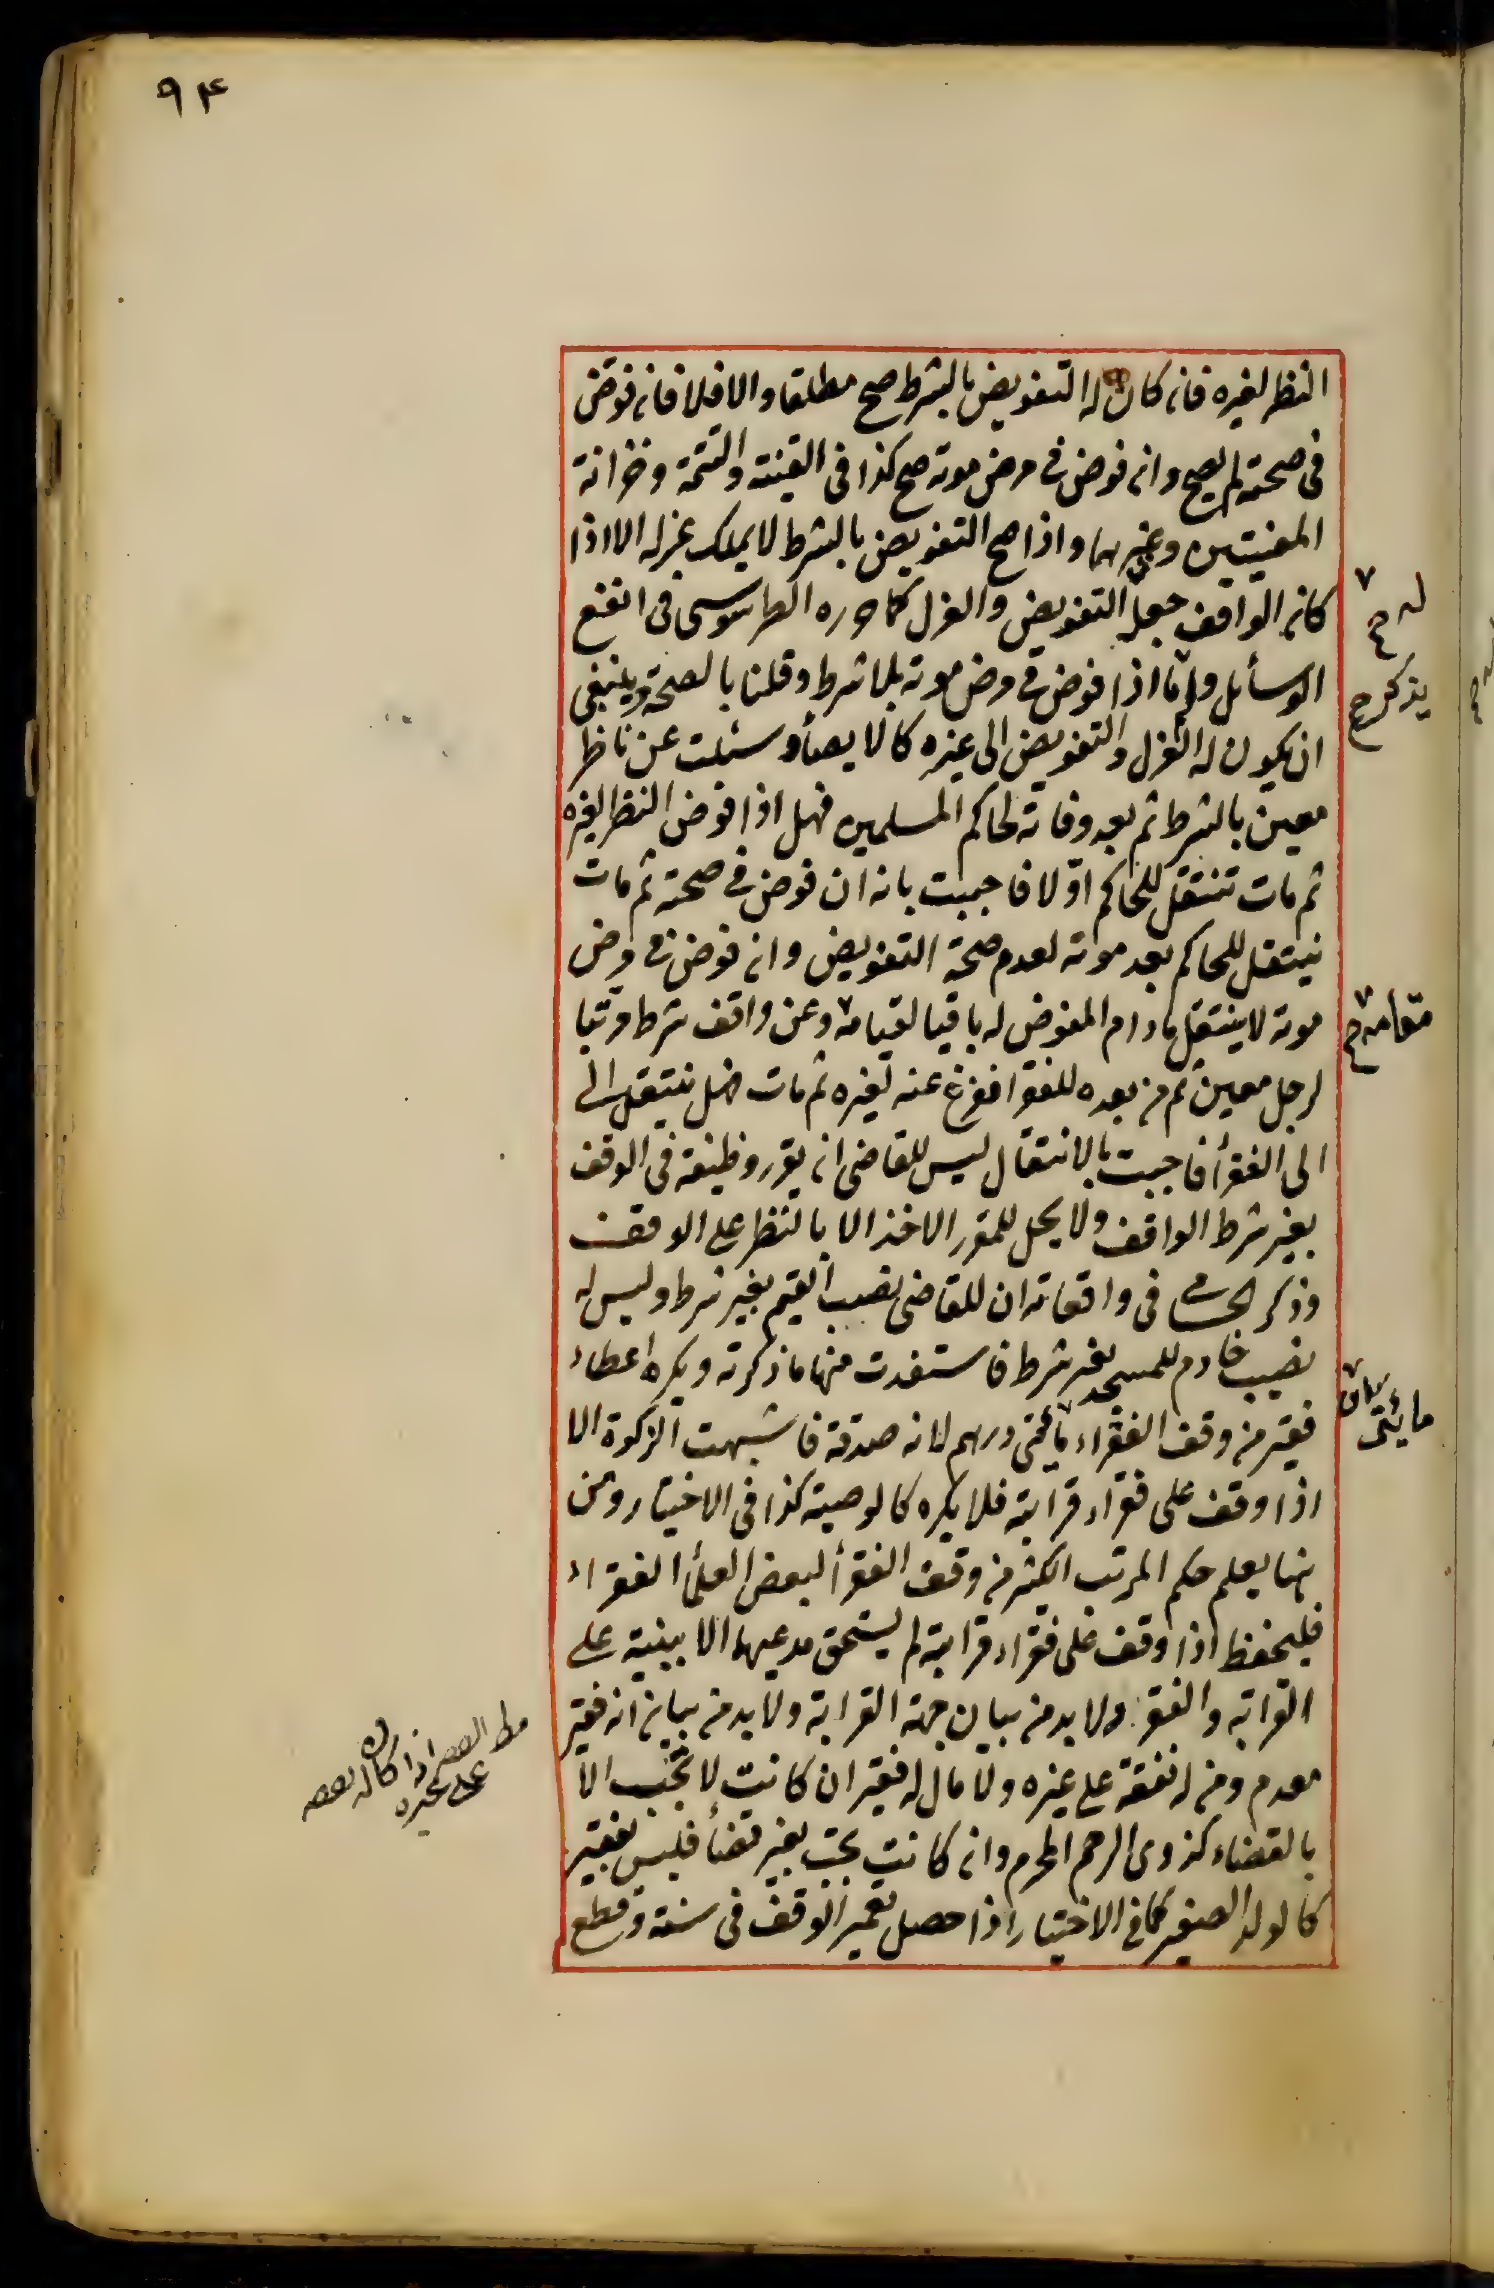 ٩٤
النظر لغيره فان كان له التفويض بالشرط صح مطلقا والا فلا فان فوض
فى صحته لم يصح وان فوض فى مرض موته صح كذا فى القينة والتتمة وخزانة
المفتيين وغيرهما واذا صح التفويض بالشرط لا يملك عزله الا اذا
كان الواقف جعل التفويض والعزل كما حرره الطرسوسى فى انفع
الوسائل واما اذا فوض فى مرض موته بلا شرط وقلنا بالصحة وينبغى
ان يكون له العزل والتفويض الى غيره كالايصأ وسئلت عن ناظر
معين بالشرط ثم بعد وفاته لحاكم المسلمين فهل اذا فوض النظر لغيره
ثم مات تنتقل للحاكم او لا فاجبت بانه ان فوض فى صحته ثم مات
ينتقل للحاكم بعد موته لعدم صحة التفويض وان فوض فى مرض
موته لا ينتقل مادام المفوض له باقيا لقيامه وعن واقف شرط مرتبا
لرجل معين ثم من بعده للفقرا ففرغ عنه لغيره ثم مات فهل ينتقل الى
الى الفقرأ فاجبت بالانتقال ليس للقاضى ان يقرر وظيفة فى الوقف
بغير شرط الواقف ولا يحل للمقرر الاخذ الا بالنظر على الوقف
وذكر الحسامى فى واقعاته ان للقاضى نصب القيم بغير شرط وليس له
نصب خادم للمسجد بغير شرط فاستفدت منها ما ذكرته ويكره اعطاء
فقير من وقف الفقراء مائتى درهم لانه صدقة فاشبهت الزكوة الا
اذا وقف على فقراء قرابته فلا يكره كالوصية كذا فى الاختيار ومن
هنا يعلم حكم المرتب الكثير من وقف الفقرأ لبعض العلمأ الفقراء
فليحفظ اذا وقف على فقراء قرابته لم يستحق مدعيها الا ببينة على
القرابة والفقر ولا بد من بيان جهة القرابة ولا بد من بيان انه فقير
معدم ومن له نفقة على غيره ولا مال له فقير ان كانت لا تجب الا
بالقضاء كذوى الرحم المحرم وان كانت تجب بغير قضأ فليس بفقير
كالولد الصغير كما فى الاختيار اذا حصل تعمير الوقف فى سنة وقطع
له صح
يذكر صح
مقامه صح
مائتى
على غيره